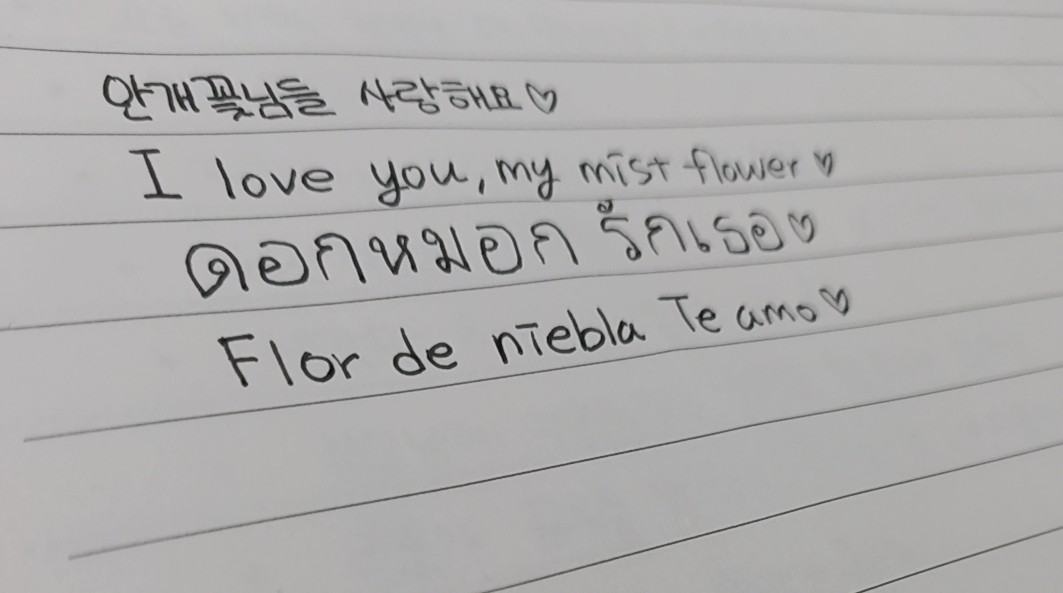 안개꽃님들 사랑해요♡
I love you, my mist flower♡
ดอกหมอก รักเธอ♡
Flor de niebla Te amo♡